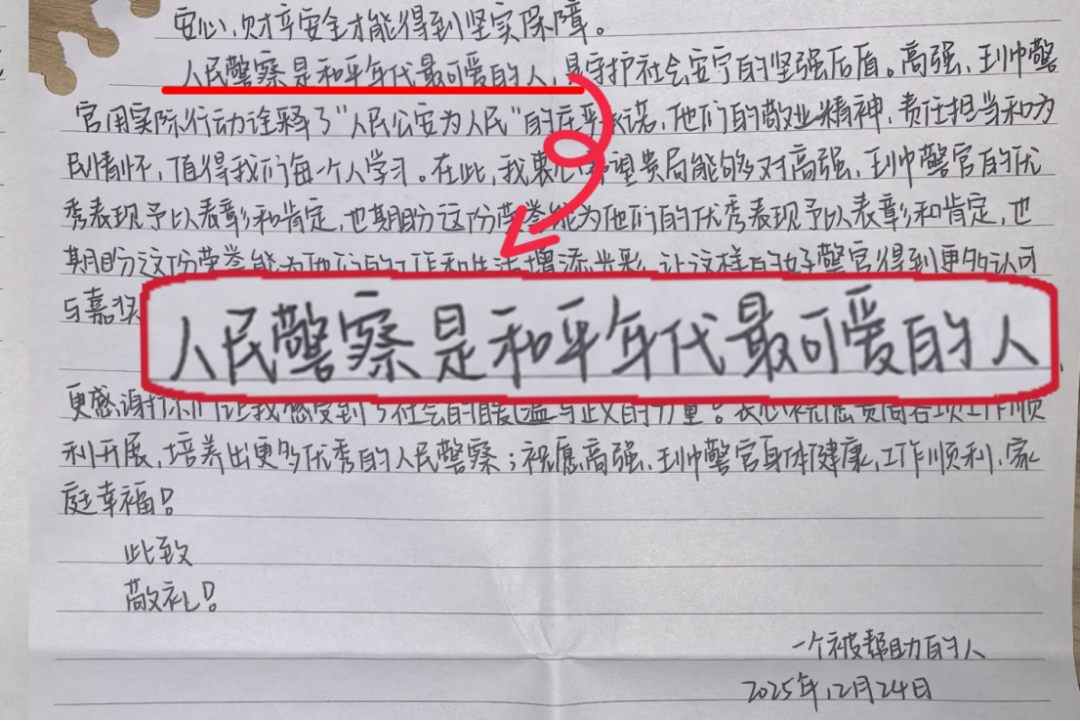 安心,财产安全才能得到坚实保障。
人民警察是和平年代最可爱的人,是守护社会安宁的坚强后盾。高强、王帅警
官用实际行动诠释了"人民公安为人民"的庄严承诺,他们的敬业精神、责任担当和为
民情怀,值得我们每一个人学习。在此,我衷心希望贵局能够对高强、王帅警官的优
秀表现予以表彰和肯定,也期盼这份荣誉能为他们的优秀表现予以表彰和肯定,也
期盼这份荣誉能为他们的工作和生活增添光彩,让这样的好警官得到更多认可
与嘉奖
人民警察是和平年代最可爱的人
更感谢你们让我感受到了社会的温暖与正义的力量。衷心祝愿贵局各项工作顺
利开展,培养出更多优秀的人民警察;祝愿高强、王帅警官身体健康,工作顺利,家
庭幸福!
此致
敬礼!
一个被帮助的人
2025年12月24日